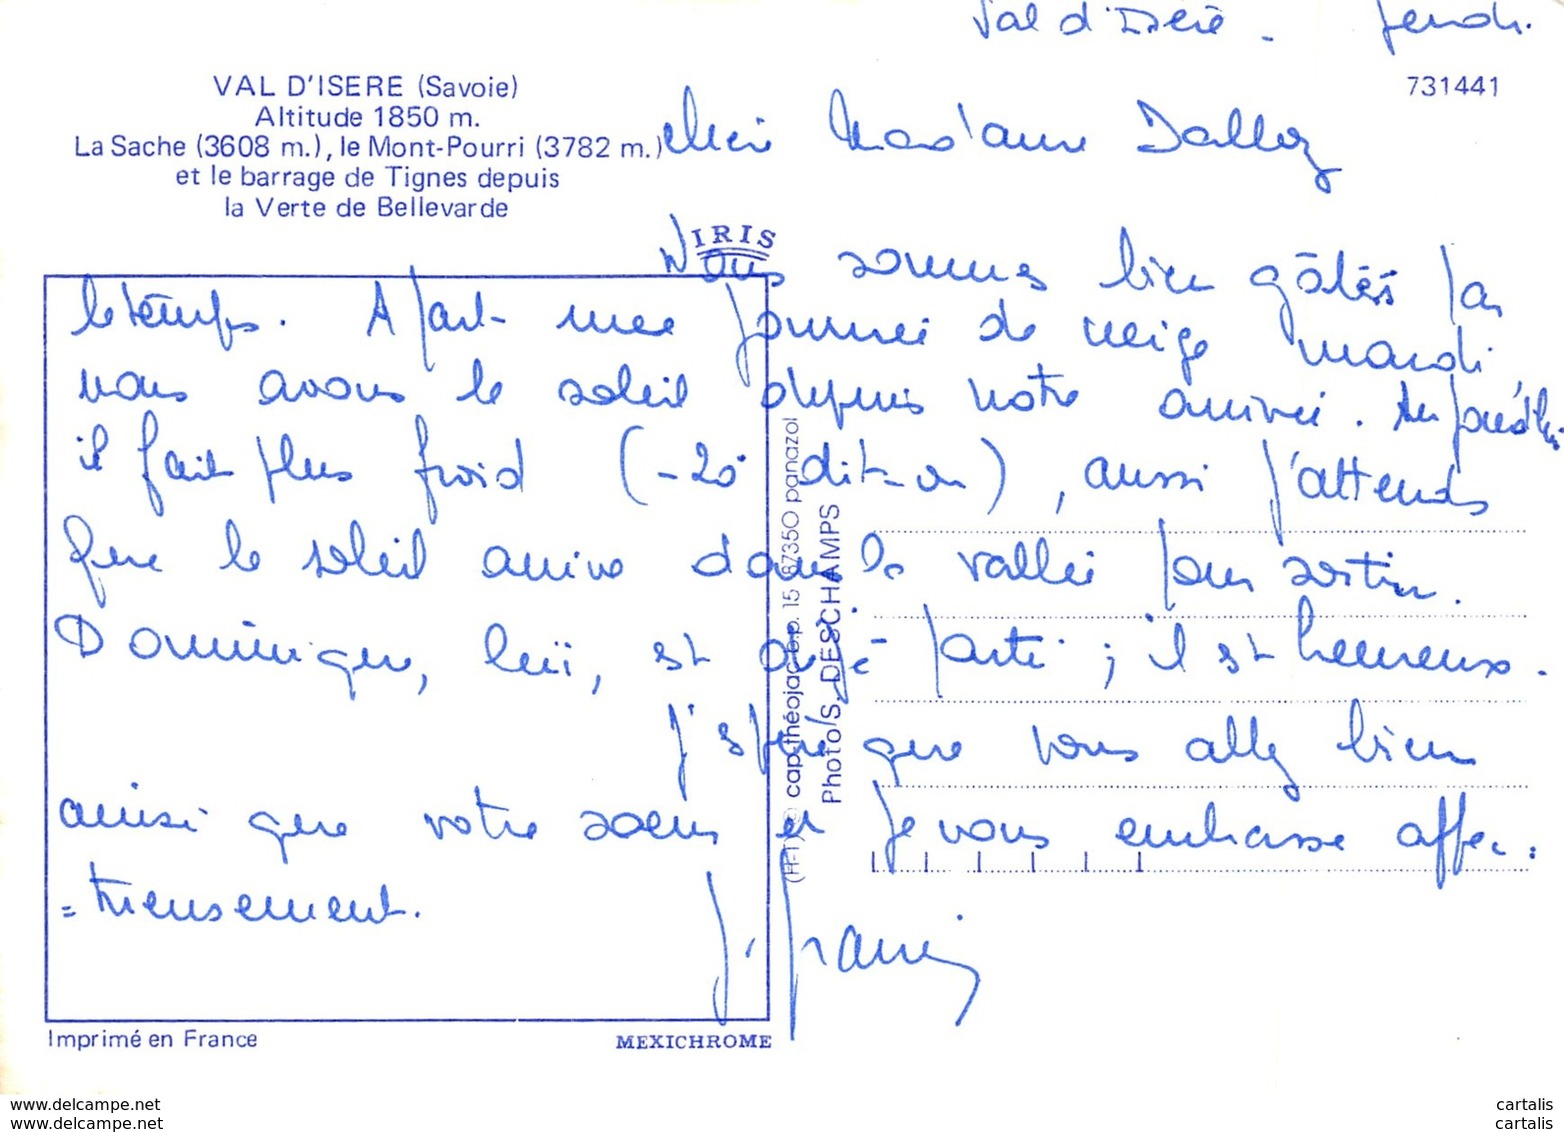 Val d'Isère - Jeudi.
VAL D'ISERE (Savoie)
Altitude 1850 m.
La Sache (3608 m.), le Mont-Pourri (3782 m.)
et le barrage de Tignes depuis
la Verte de Bellevarde
731441
Chère Madame Dalloz
IRIS
Nous sommes bien gâtés par
le temps. A part une journée de neige mardi,
nous avons le soleil depuis notre arrivée.
il fait plus froid (-20° dit-on), aussi j'attends
que le soleil arrive dans la vallée pour sortir.
Dominique, lui, est déjà parti ; il est heureux.
J'espère que vous allez bien
ainsi que votre soeur et je vous embrasse affec-
=tueusement.
(H-T) © cap-théojac b.p. 15 87350 panazol
Photo S. DESCHAMPS
Imprimé en France
MEXICHROME
www.delcampe.net
www.delcampe.net
cartalis
cartalis